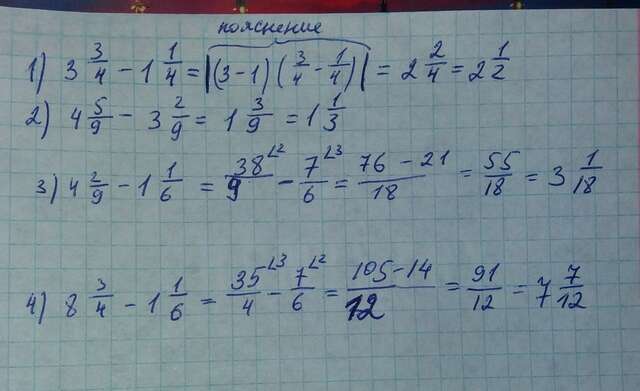 пояснение
1) 3 3/4 − 1 1/4 = |(3−1) (3/4 − 1/4)| = 2 2/4 = 2 1/2
2) 4 5/9 − 3 2/9 = 1 3/9 = 1 1/3
3) 4 2/9 − 1 1/6 = 38/9 ^2 − 7/6 ^3 = (76 − 21)/18 = 55/18 = 3 1/18
4) 8 3/4 − 1 1/6 = 35/4 ^3 − 7/6 ^2 = (105 − 14)/12 = 91/12 = 7 7/12